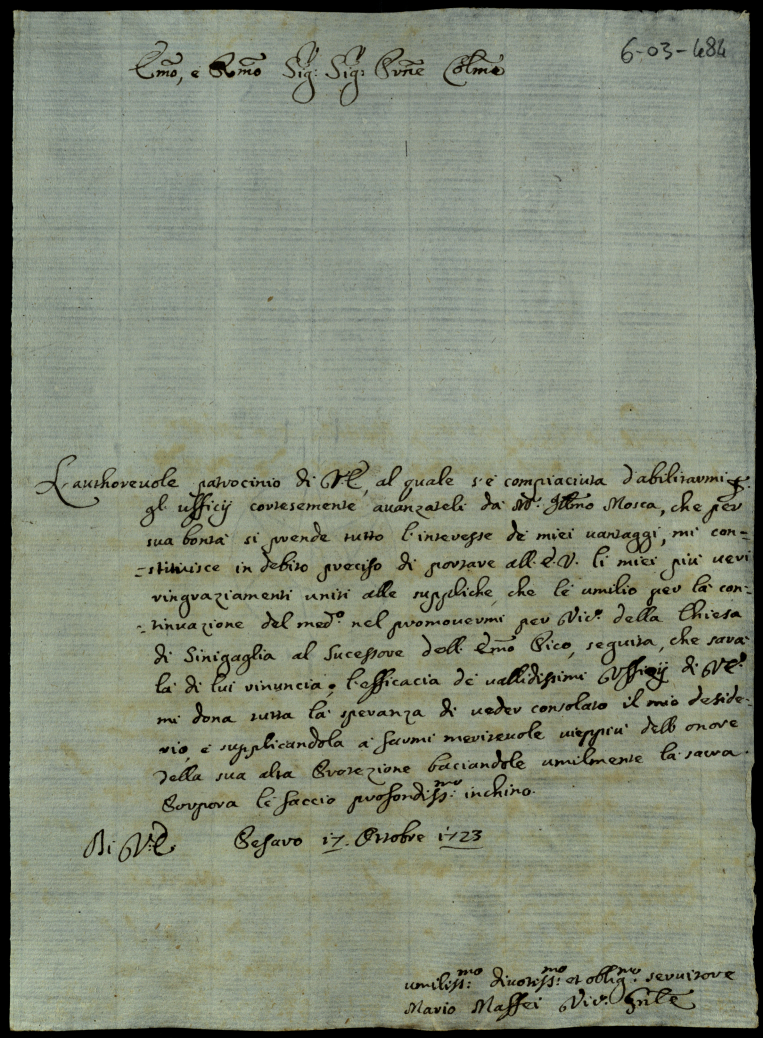 6-03-484
Emo, e Rmo Sig: Sig: Prne Colmo
L'authoreuole patrocinio di V.E., al quale s'è compiaciuta d'abilitarmi p.
gl'ufficij cortesemente auanzateli da Mr. Illmo Mosca, che per
sua bontà si prende tutto l'interesse de miei uantaggi, mi con=
=stituisce in debito preciso di portare all'E.V. li miei più ueri
ringraziamenti uniti alle suppliche, che le umilio per la con=
=tinuazione del medo. nel promouermi per Vico. della Chiesa
di Sinigaglia al Sucessore dell'Emo Pico, seguita, che sarà
la di lui rinuncia; l'efficacia de ualidissimi Vfficij di V.E.
mi dona tutta la speranza di ueder consolato il mio deside=
rio, e supplicandola a farmi meriteuole uieppiù dell'onore
della sua alta Protezione baciandole umilmente la sacra
Porpora le faccio profondissmo. inchino.
Di V.E. Pesaro 17. Ottobre 1723
umilissmo. diuotissmo. et obligmo. seruitore
Mario Maffei Vico. Gnle